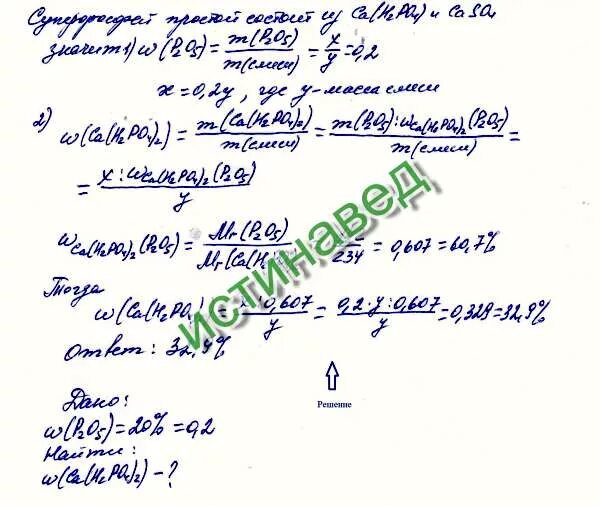 Суперфосфат простой состоит из Ca(H₂PO₄) и CaSO₄
значит 1) w(P₂O₅) = m(P₂O₅)/m(смеси) = x/y = 0,2
x = 0,2y, где y - масса смеси
2) w(Ca(H₂PO₄)₂) = m(Ca(H₂PO₄)₂)/m(смеси) = m(P₂O₅) : w Ca(H₂PO₄)₂ (P₂O₅)/m(смеси) =
= x : w Ca(H₂PO₄)₂ (P₂O₅)/y
w Ca(H₂PO₄)₂ (P₂O₅) = Mr(P₂O₅)/Mr(Ca(H = /234 = 0,607 = 60,7%
Тогда
w(Ca(H₂PO₄) = : 0,607/y = 0,2 · y : 0,607/y = 0,329 = 32,9%
Ответ: 32,9%
истинавед
Решение
Дано:
w(P₂O₅) = 20% = 0,2
Найти:
w(Ca(H₂PO₄)₂) - ?